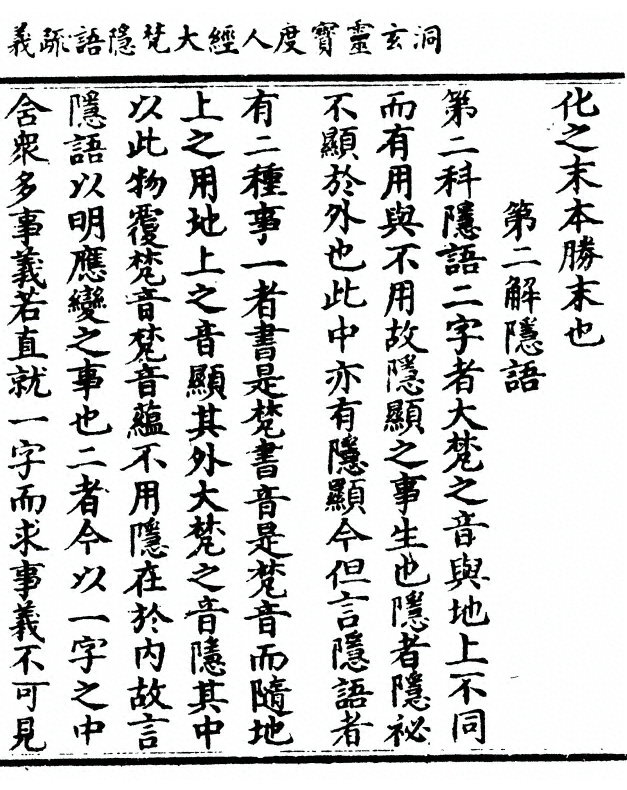 洞玄靈寶度人經大梵隱語疏義
化之末本勝末也
第二解隱語
第二科隱語二字者大梵之音與地上不同
而有用與不用故隱顯之事生也隱者隱祕
不顯於外也此中亦有隱顯今但言隱語者
有二種事一者書是梵書音是梵音而隨地
上之用地上之音顯其外大梵之音隱其中
以此物覆梵音梵音蘊不用隱在於內故言
隱語以明應變之事也二者今以一字之中
含衆多事義若直就一字而求事義不可見